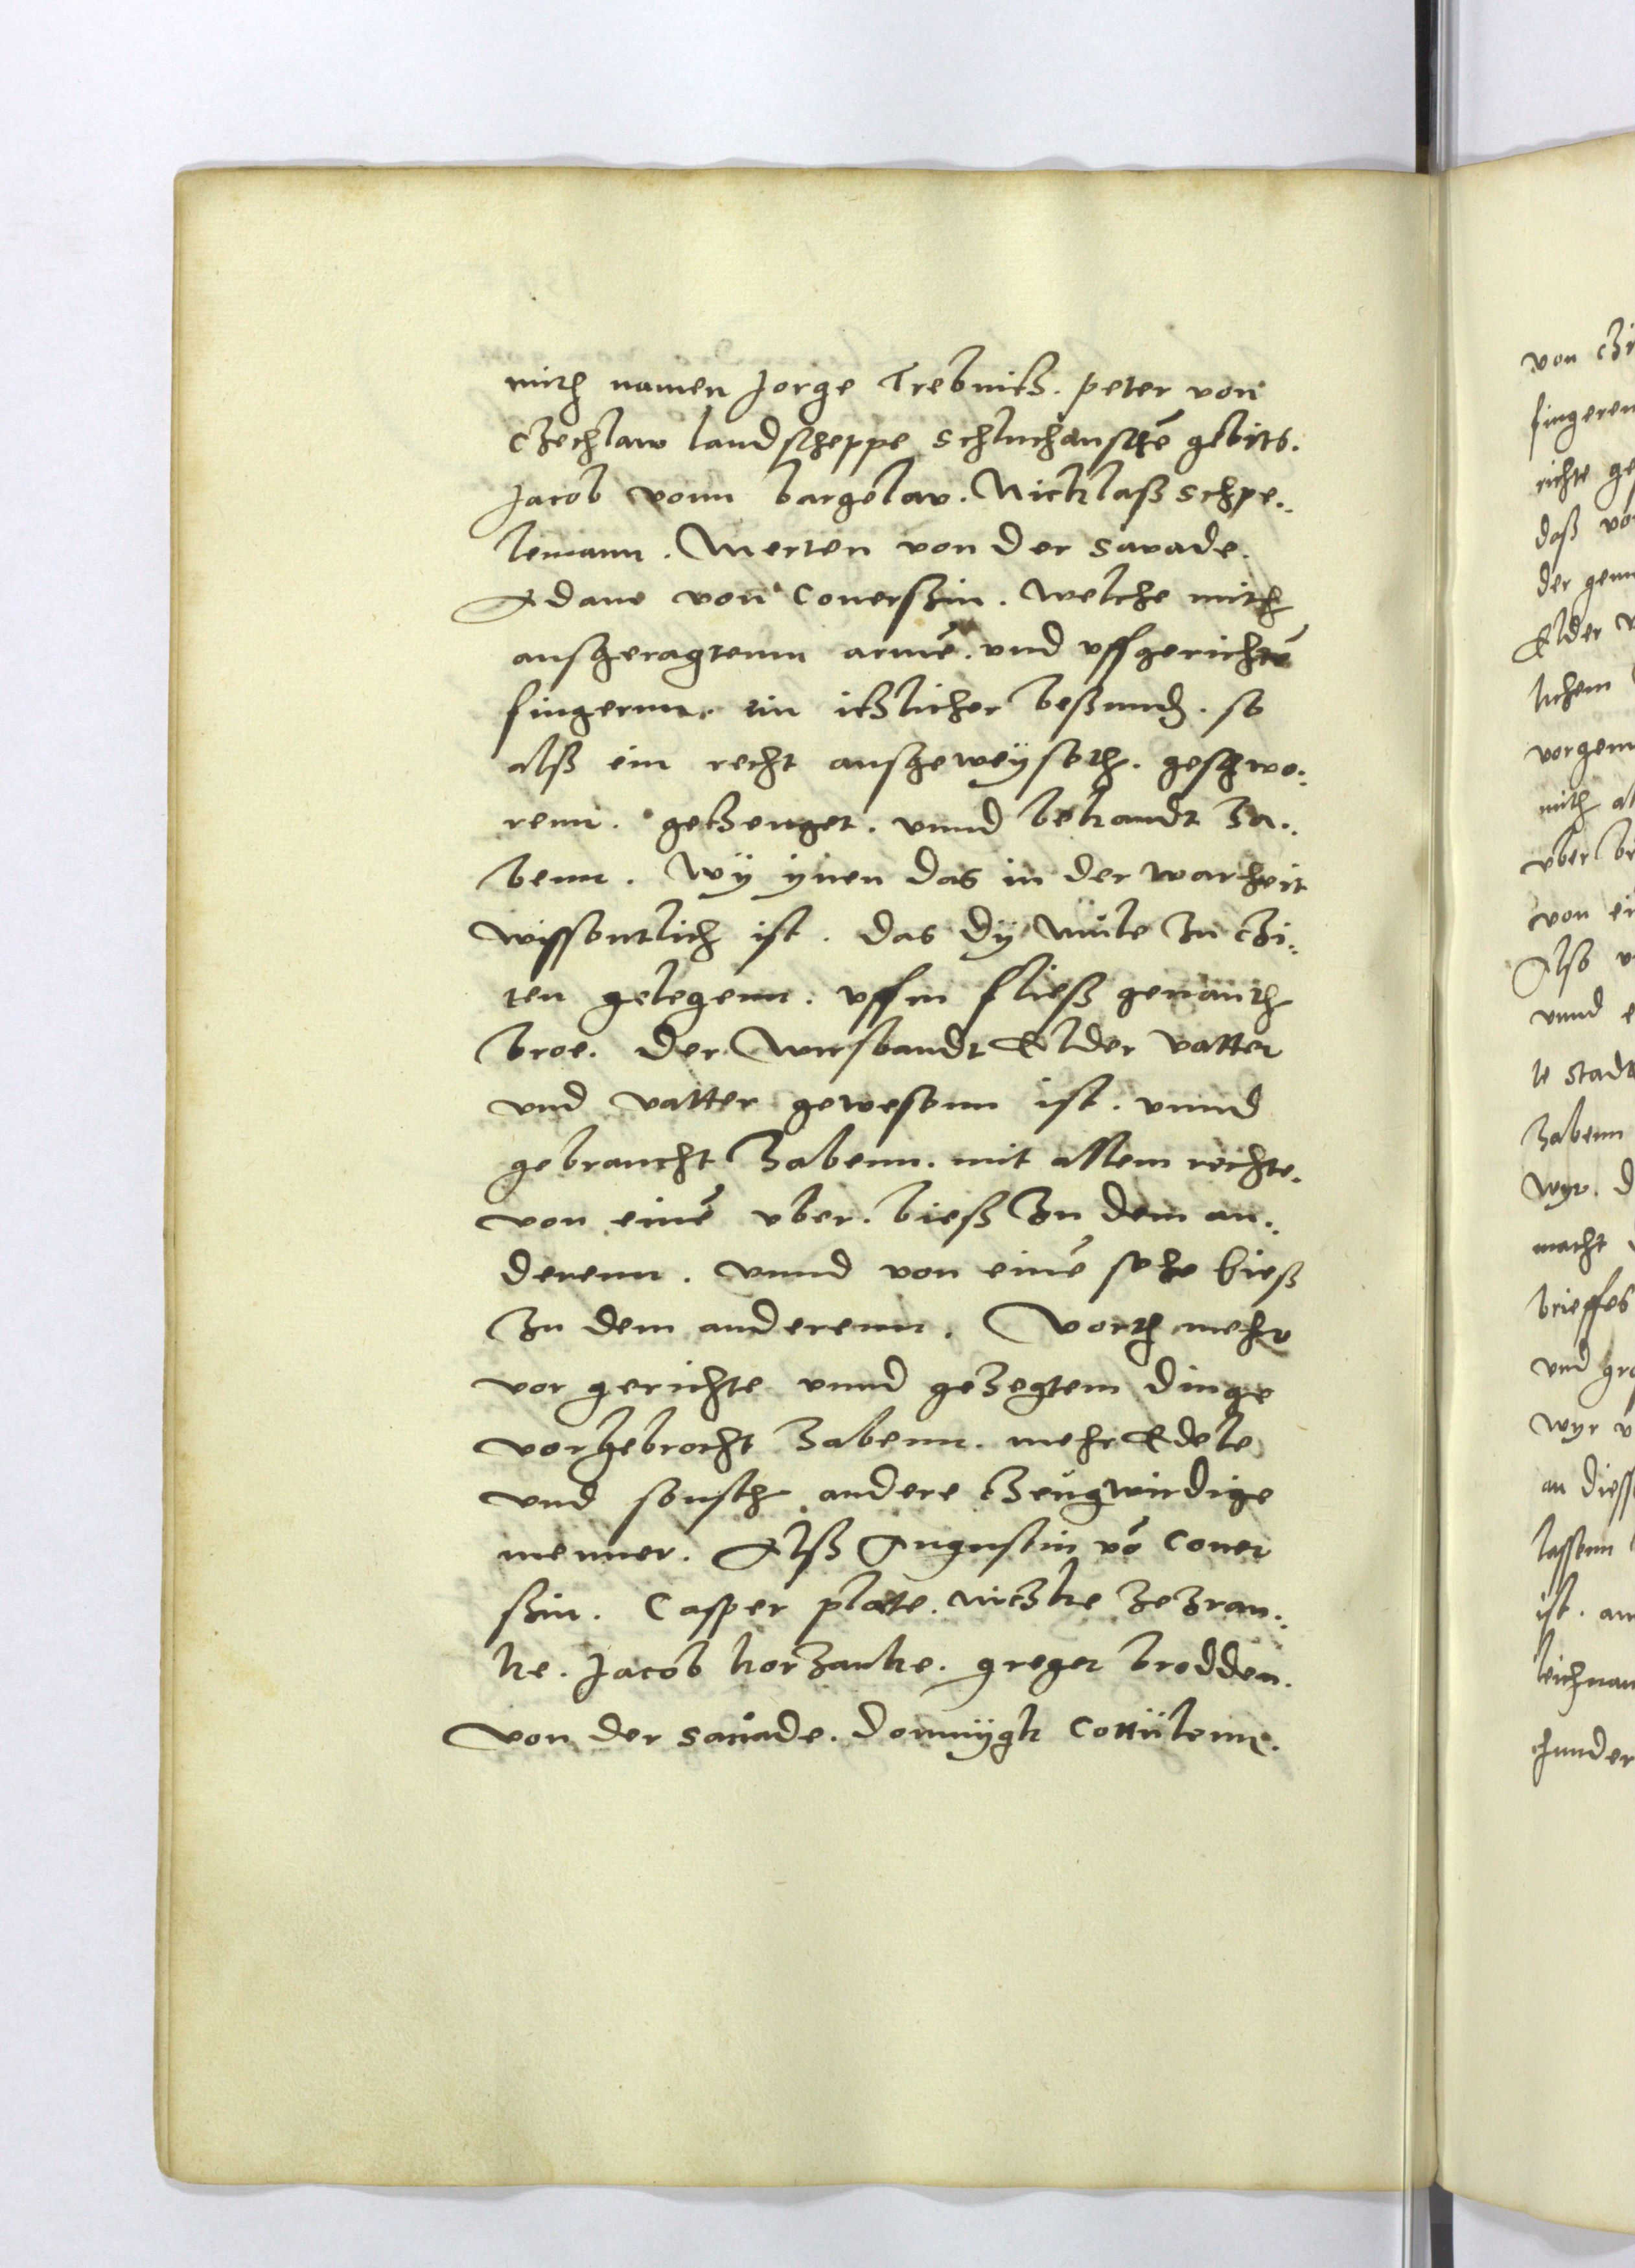 mith namen Jorge Trebnitz. peter von
Czechlaw landscheppe schluchauschē gebits.
Jacob vonn bargelav. Nicklaß schpe..
lemann. Merten von der savade.
Adam von Conerßin. welche mith
ausgeragtenn armē. vnd vffgerichtē
fingernn. ein itzlicher beßundß. so
alß ein recht ausgeweÿseth. geschwo..
renn. getzeuget. vnnd bekandt ha..
benn. wÿ ÿnen das in der warheit
wissentlich ist. das dÿ mule zu Czi..
ten gelegenn. vffm fließ genanth
broe. der Elder vatter
vnd vatter gewesenn ist. vnnd
gebraucht habenn. mit allem rechte.
von einē vber. bieß zu dem an..
derenn. vnnd von einē sehe bieß
zu dem anderenn. Vorth mehr
vor gerichte vnnd gehegtem dinge
vorgebrocht habenn. mehr Edele
vnd sonsth andere Zeugwirdige
menner. Alß Augustin vō Coner
ßin. Casper plate. nitzke
ke. Jacob korhanke. greger brodden.
von der savade. domnÿgk
von Czi
fingeren
richte ge
daß vo
der gem
Elder v
lichem
vorgem
mith al
vber br
von ei
Also v
vnnd e
le stadt
habenn
wyr. d
macht
brieffes
vnd gro
wyr v
an dies
lassenn
ist. am
leichnam
hunder